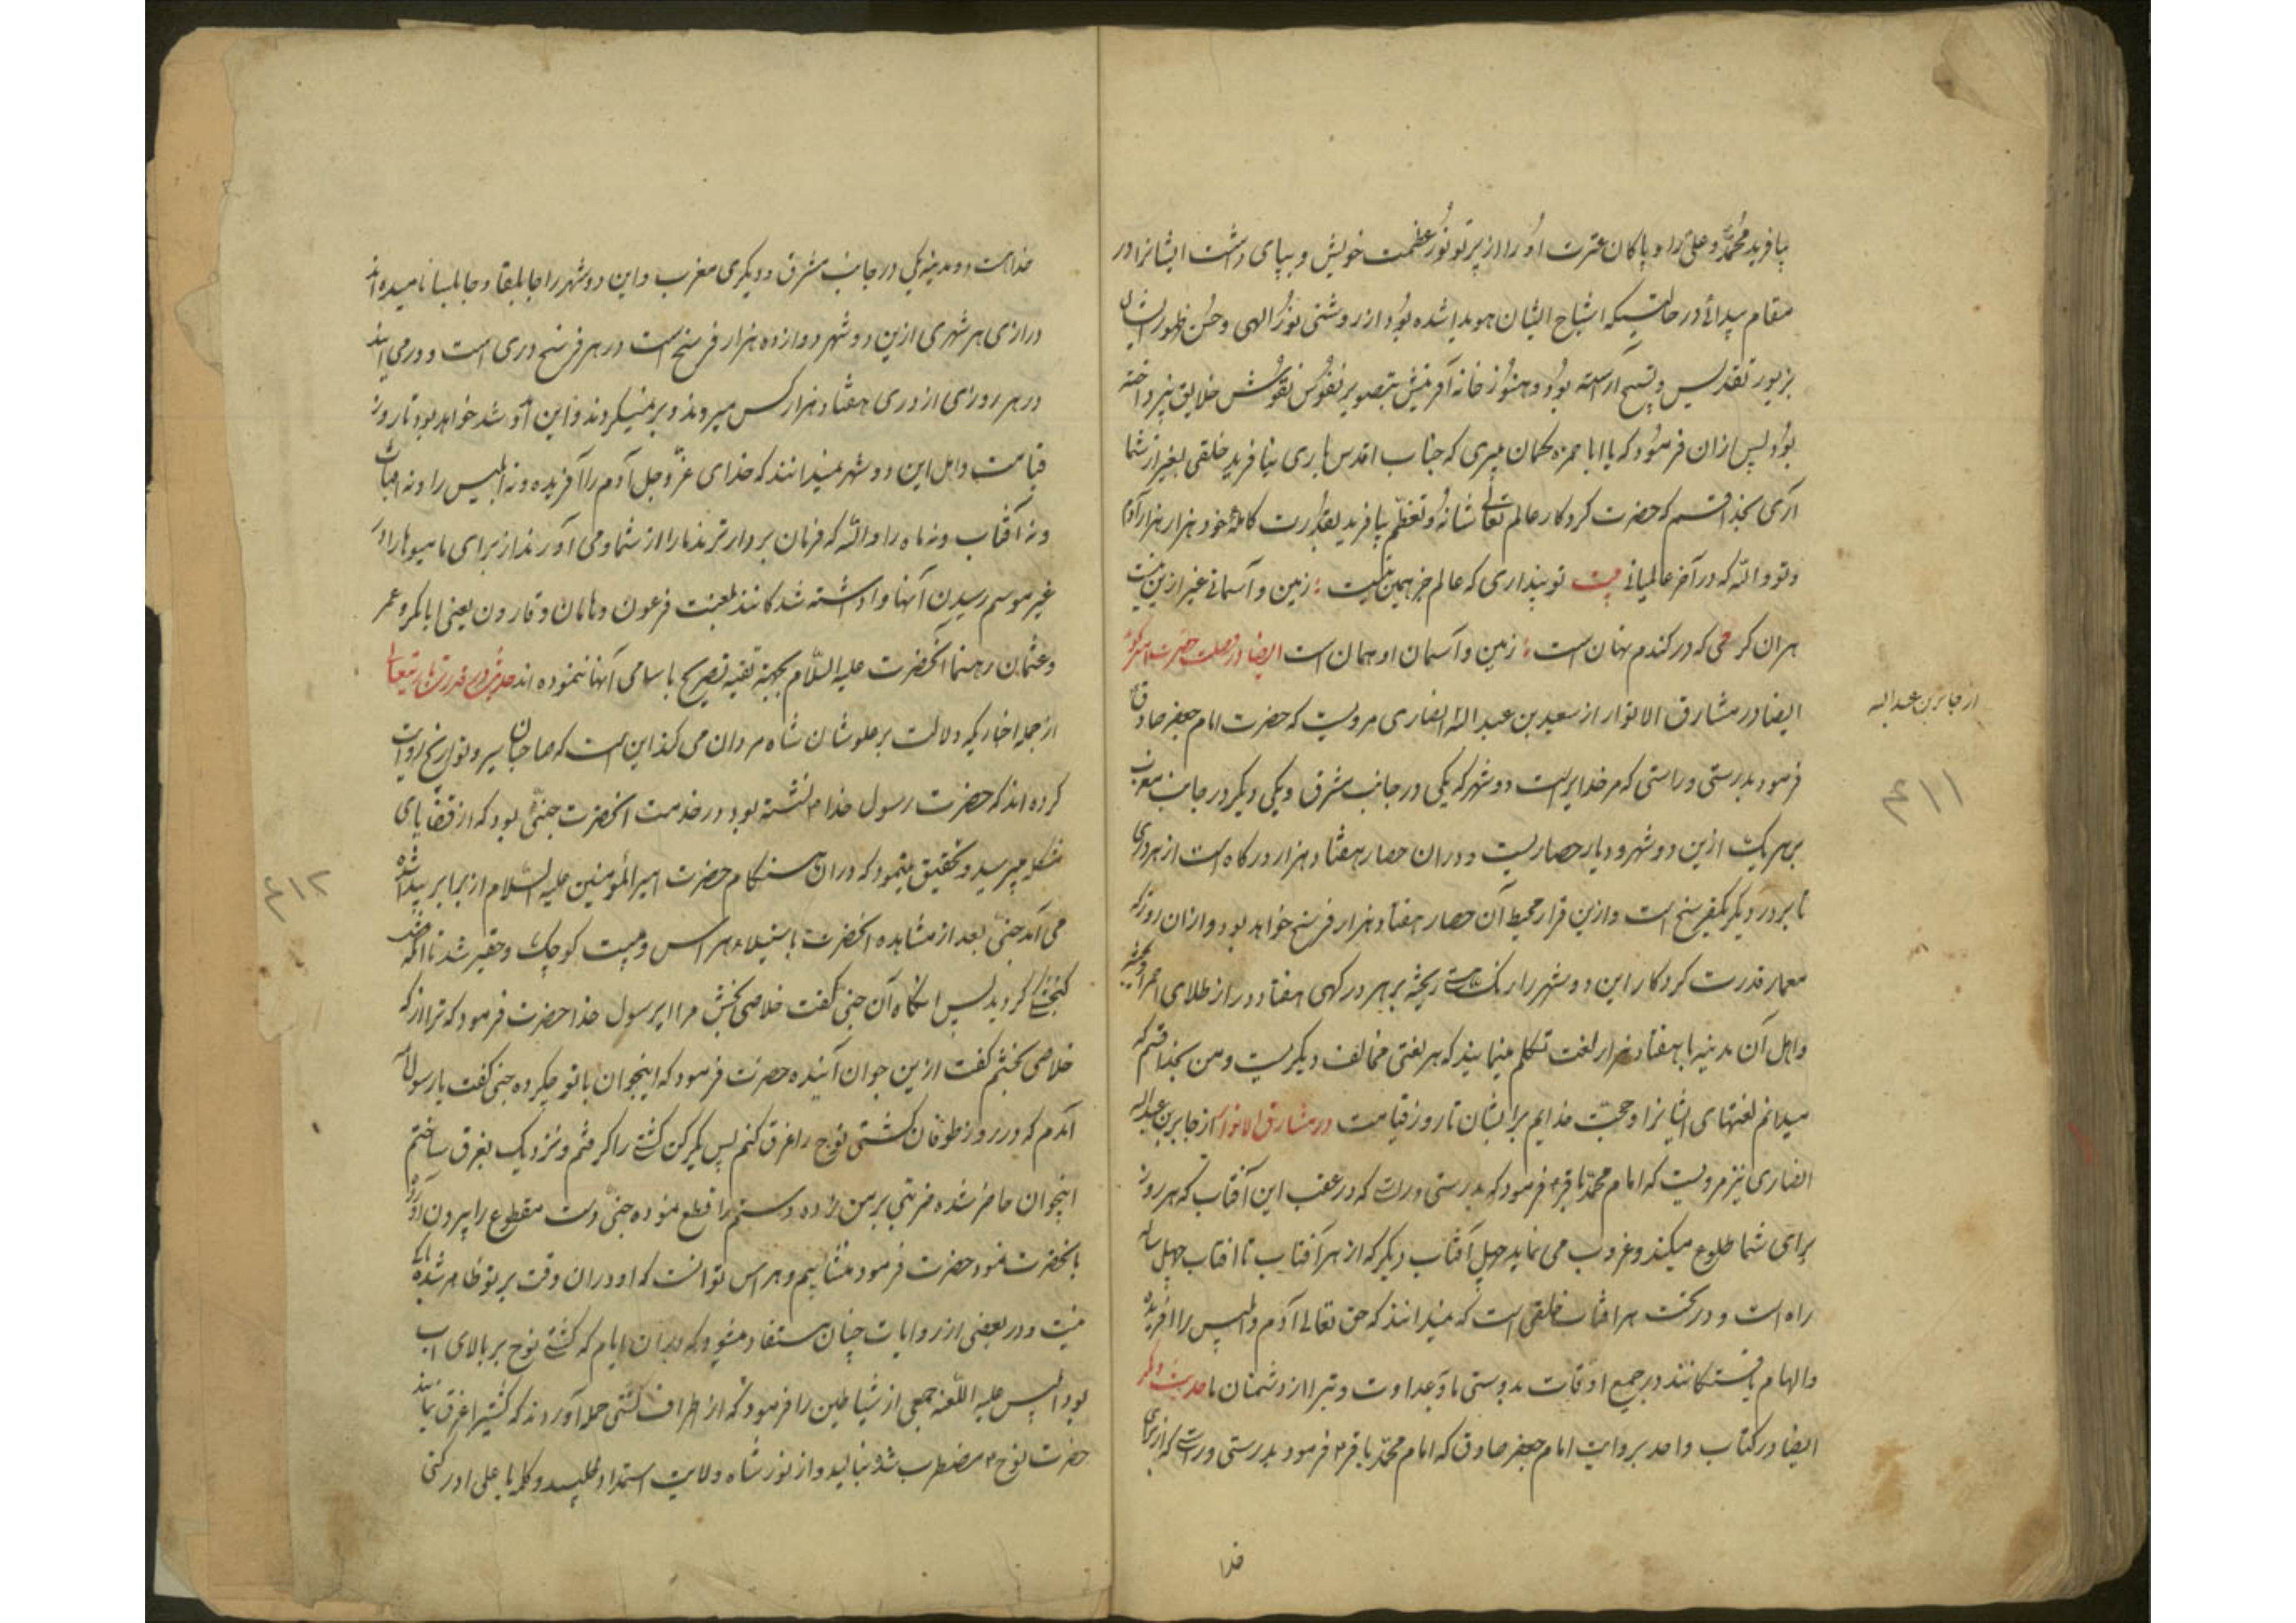 بیافرید محمد و علی را و پاکان عترت او را از پرتو نور عظمت خویش و بپای داشت ایشانرا در
مقام پیدائی در حالتیکه اشباح ایشان هویدا شده بود از روشنی نور الهی و حسن ظهور ایشان
بزیور تقدیس و تسبیح آراسته بود و هنوز خانه آفرینش بتصویر نفوس نقوش خلایق نپرداخته
بود پس ازان فرمود که یا ابا حمزه گمان میبری که جناب اقدس باری نیافرید خلقی بغیر از شما
آری بخدا قسم که حضرت کردکار عالم تعالی شانه و تعظم بیافرید بقدرت کامله خود هزار هزار آدم
و تو والله که در آخر عالمیانی بیت تو پنداری که عالم جز همین نیست زمین و آسمانی غیر ازین نیست
هران کرمی که در کندم نهان است زمین و آسمان او همان است ایضا در
ایضا در مشارق الانوار از سعید بن عبد الله انصاری مرویست که حضرت امام جعفر صادق
از جابر بن عبد الله
فرمود بدرستی و راستی که مر خدایراست دو شهر که یکی در جانب مشرق و یکی دیکر در جانب مغرب
۴۱۱
بر هر یک ازین دو شهر و دیار حصاریست و دران حصار هفتاد هزار درکاه است از هر دری
تا بر در دیکر یکفرسنخ است و ازین قرار محیط آن حصار هفتاد هزار فرسنخ خواهد بود و ازان روز که
معمار قدرت کردکار این دو شهر را رنک هستی ریخته بر هر درکهی هفتاد در از طلای احمر
و اهل آن مدینه با هفتاد هزار لغت تکلم مینمایند که هر لغتی مخالف دیکریست و من بخدا قسم که
میدانم لغتهای ایشانرا و حجت خدایم بر ایشان تا روز قیامت در مشارق الانوار از جابر بن عبد الله
انصاری نیز مرویست که امام محمد باقر ع فرمود که بدرستی و راستی که در عقب این آفتاب که هر روز
برای شما طلوع میکند و غروب می نماید چهل آفتاب دیکر که از هر آفتاب تا افتاب چهل ساله
راه است و در تحت هر افتاب خلقی است که نمیدانند که حق تعالی آدم و ابلیس را افریده
و الهام یافتکانند در جمیع اوقات بدوستی ما و عداوت و تبرا از دشمنان ما حدیث دیکر
ایضا در کتاب واحد بروایت امام جعفر صادق که امام محمد باقر ع فرمود بدرستی و راستی که از برای
خدا
خداست دو مدینه یکی در جانب مشرق و دیکری مغرب و این دو شهر را جابلقا و جابلسا نامیده اند
درازی هر شهری ازین دو شهر دوازده هزار فرسنخ است در هر فرسنخ دری است و در می آیند
در هر روزی از دری هفتاد هزار کس میروند و بر نمیکردند و این آمد شد خواهد بود تا روز
قیامت و اهل این دو شهر نمیدانند که خدای عز و جل آدم را آفریده و نه ابلیس را و نه
و نه آفتاب و نه ماه را و الله که فرمان بردار ترند ما را از شما و می آورند از برای ما میوها را در
غیر موسم رسیدن آنها وا داشته شدکانند بلعنت فرعون و هامان و قارون یعنی ابابکر و عمر
و عثمان آنحضرت علیه السلام بجهة تقیه تصریح باسامی آنها ننموده اند
از جمله اخباریکه دلالت بر علو شان شاه مردان می کند این است که صاحبان سیر و تواریخ روایت
کرده اند که حضرت رسول خدا ص نشسته بود و در خدمت انحضرت جنی بود که از قضایای
مشکله میپرسید و تحقیق مینمود که دران هنکام حضرت امیر المؤمنین علیه السلام از برابر پیدا شده
۴۱۲
می آمد جنی بعد از مشاهده انحضرت باستیلاء هراس و هیبت کوچک و حقیر شد تا انکه
کنجشکی کردید پس انکاه آن جنی کفت خلاصی بخش مرا ای رسول خدا حضرت فرمود که ترا از که
خلاصی بخشم کفت ازین جوان آینده حضرت فرمود که اینجوان با تو چکرده جنی کفت یا رسول الله
آمدم که در روز طوفان کشتی نوح را غرق کنم پس کشتی را کرفتم و نزدیک بغرق ساختم
اینجوان حاضر شده ضربتی بر من زده و دستم را قطع نموده جنی دست مقطوع را بیرون آورده
بانحضرت نمود حضرت فرمود و هراس تو انست که او دران وقت بر تو ظاهر شده
نیست و در بعضی از روایات چنان مستفاد میشود که دران ایام که کشتی نوح بر بالای آب
بود ابلیس علیه اللعنه جمعی از شیاطین را فرمود که از اطراف کشتی حمله آوردند که کشتیرا غرق نمایند
حضرت نوح ع مضطرب شد و نالید و از نور شاه ولایت استمداد طلبید و کلمه یا علی ادرکنی